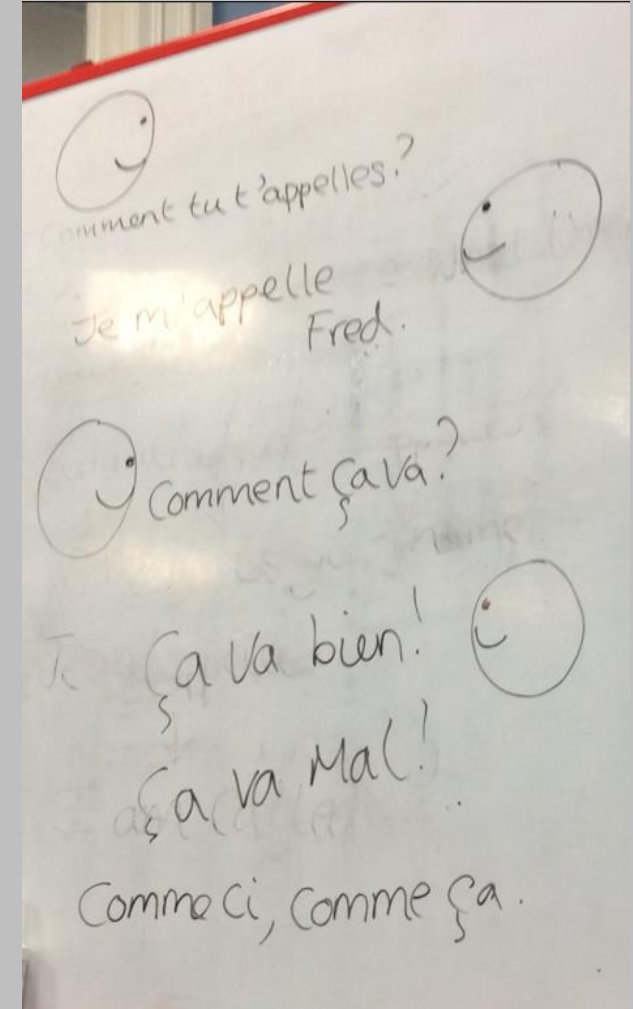 Comment tu t'appelles?
Je m'appelle
Fred.
Comment ça va?
Ça va bien!
Ça va Mal!
Comme ci, comme ça.